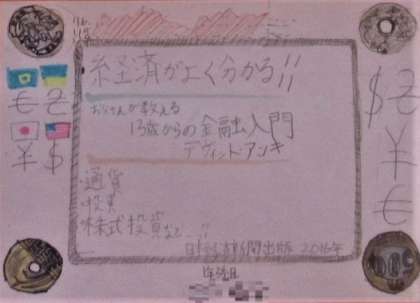 経済がよく分かる!!
お父さんが教える
13歳からの金融入門
デヴィッド・アンキ
・通貨
・投資
・株式投資など…!!
日本経済新聞出版 2016年
€
¥ $
$
¥
€